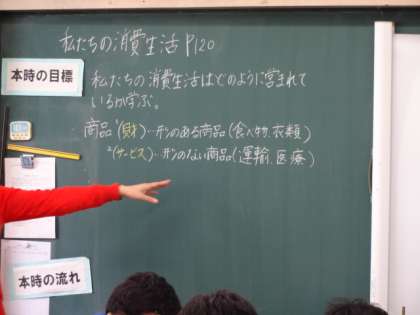 私たちの消費生活 P120
本時の目標
私たちの消費生活はどのように営まれて
いるか学ぶ。
商品 1(財)…形のある商品(食べ物、衣類)
2(サービス)…形のない商品(運輸、医療)
本時の流れ